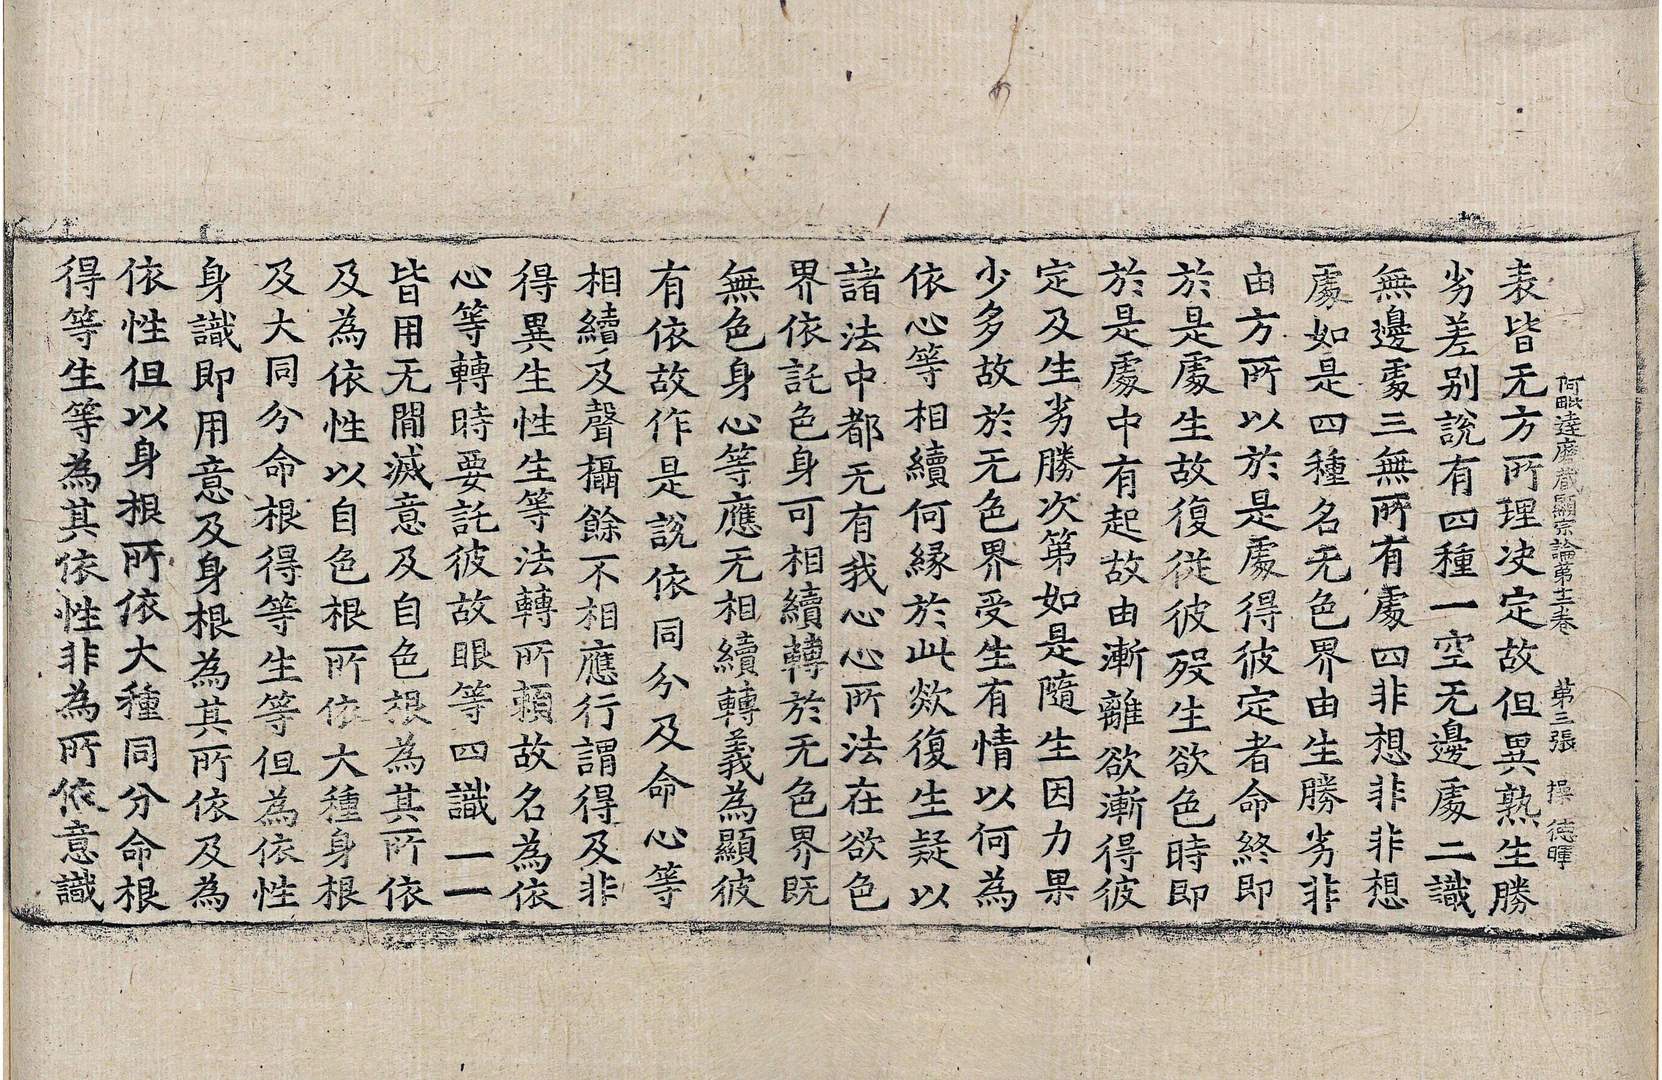 阿毗達磨藏顯宗論第十二卷　第三張　操　德暉
表皆无方所理決定故但異熟生勝
劣差别說有四種一空无邊處二識
無邊處三無所有處四非想非非想
處如是四種名无色界由生勝劣非
由方所以於是處得彼定者命終即
於是處生故復從彼歿生欲色時即
於是處中有起故由漸離欲漸得彼
定及生劣勝次第如是隨生因力果
少多故於无色界受生有情以何為
依心等相續何緣於此欻復生疑以
諸法中都无有我心心所法在欲色
界依託色身可相續轉於无色界既
無色身心等應无相續轉義為顯彼
有依故作是說依同分及命心等
相續及聲攝餘不相應行謂得及非
得異生性生等法轉所賴故名為依
心等轉時要託彼故眼等四識一一
皆用无間滅意及自色根為其所依
及為依性以自色根所依大種身根
及大同分命根得等生等但為依性
身識即用意及身根為其所依及為
依性但以身根所依大種同分命根
得等生等為其依性非為所依意識